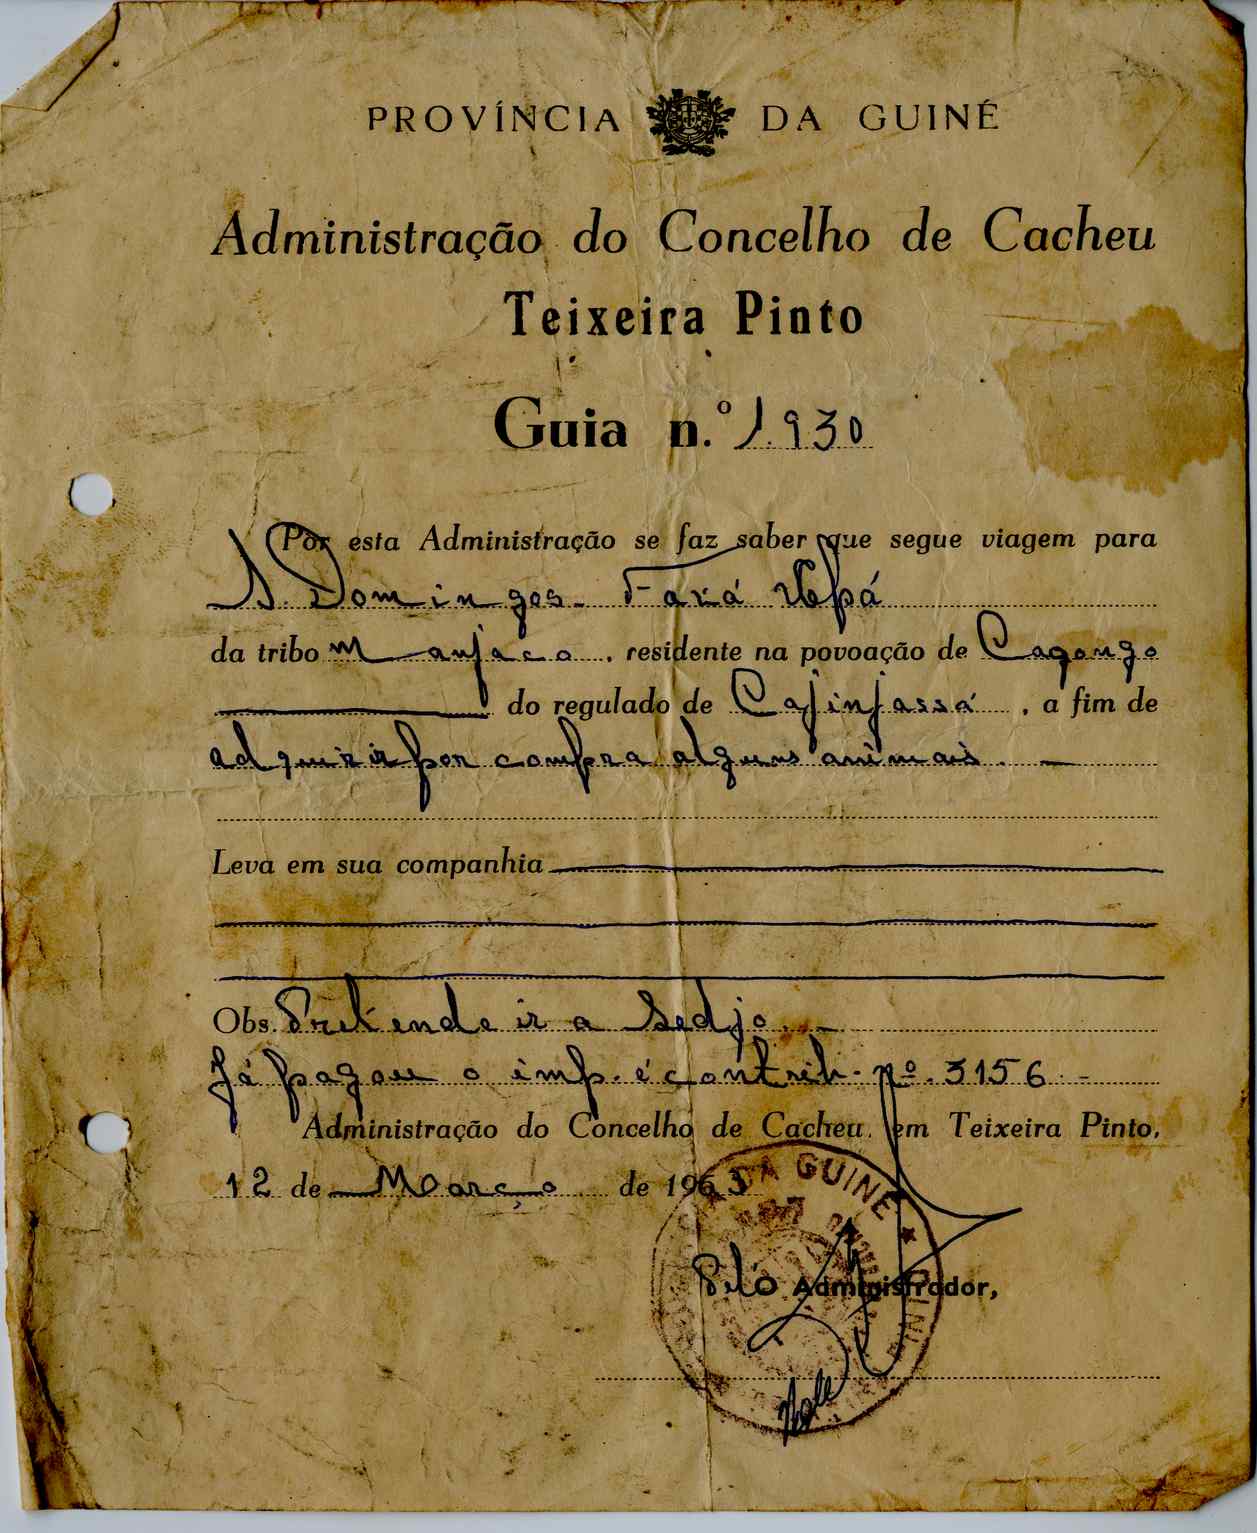 PROVÍNCIA DA GUINÉ
Administração do Concelho de Cacheu
Teixeira Pinto
Guia n.º 1.930
Por esta Administração se faz saber que segue viagem para
S. Domingos - Fará
da tribo Manjaco, residente na povoação de Cagongo
do regulado de Cajinjassá, a fim de
adquirir por compra alguns animais. —
Leva em sua companhia
Obs. Pretende ir a Sedjo. —
Já pagou o imp. é contrib. nº. 3156 -
Administração do Concelho de Cacheu, em Teixeira Pinto,
12 de Março de 1963
DA GUINÉ
Pelo Administrador,